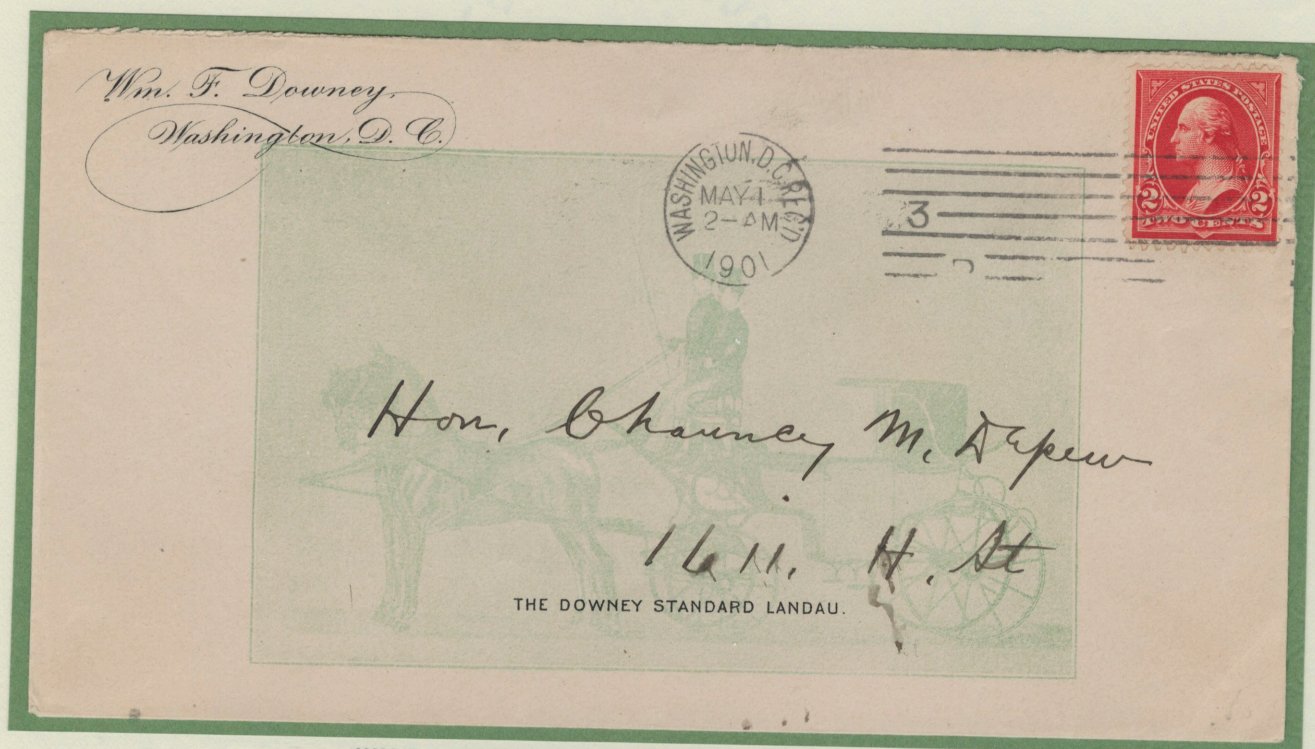 Wm. F. Downey,
Washington, D. C.
WASHINGTON, D.C. REC'D
MAY 1
2-AM
1901
3
UNITED STATES POSTAGE
2 2
TWO CENTS
Hon. Chauncey M. Depew
1611. H. St
THE DOWNEY STANDARD LANDAU.